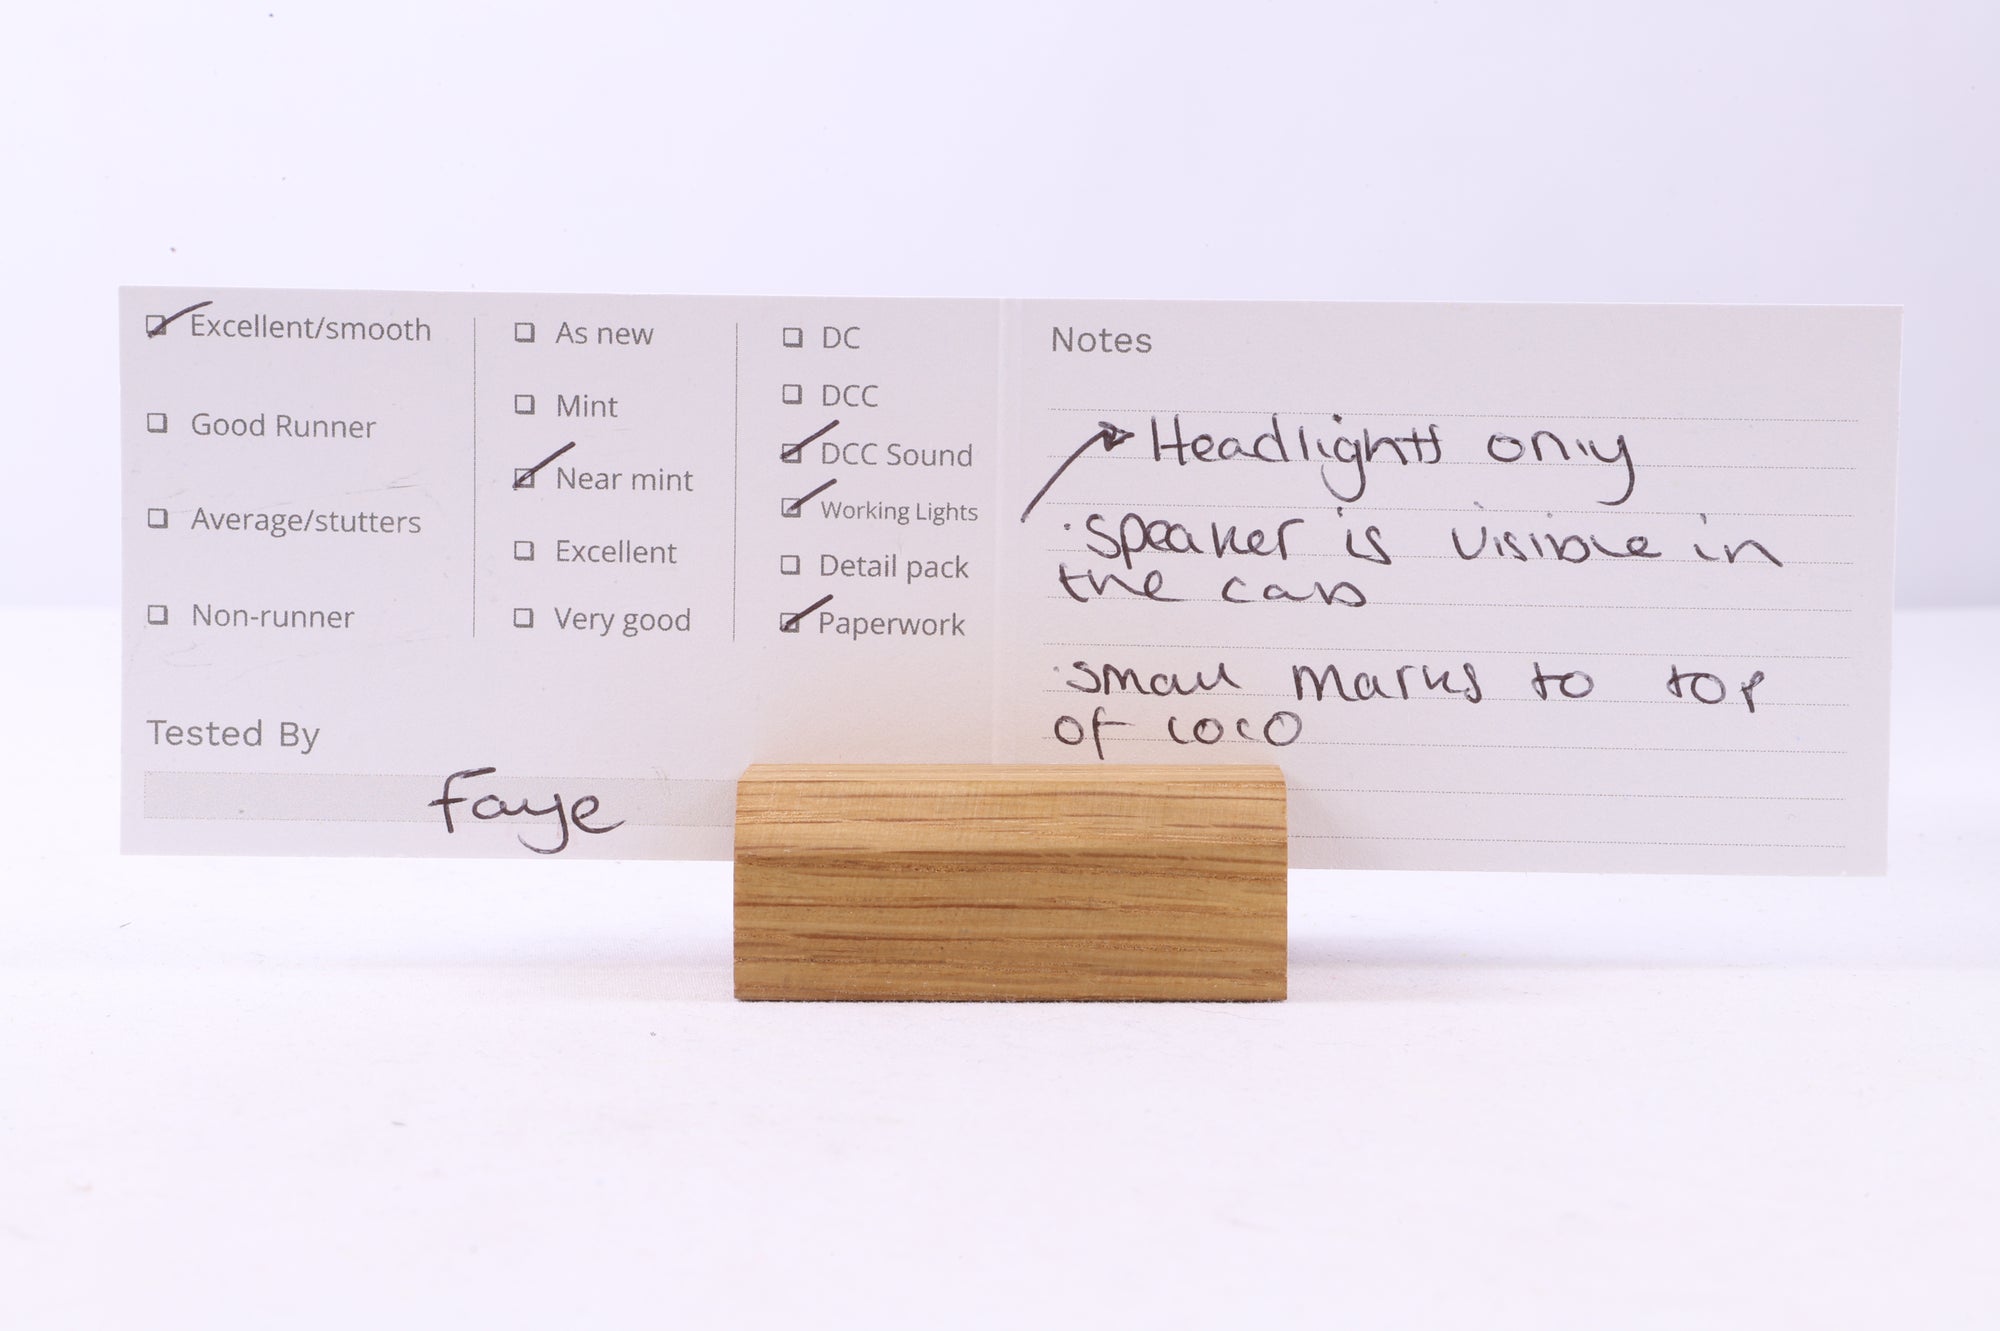 Excellent/smooth
Good Runner
Average/stutters
Non-runner
As new
Mint
Near mint
Excellent
Very good
DC
DCC
DCC Sound
Working Lights
Detail pack
Paperwork
Tested By
Faye
Notes
Headlights only
·Speaker is visible in
the cab
·small marks to top
of loco